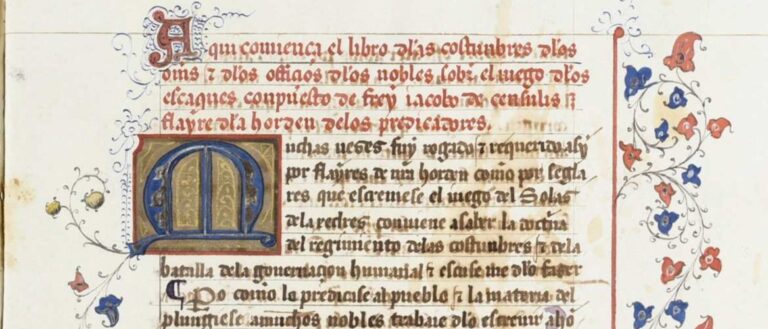 Aqui comiença el libro dlas costunbres dlos
oms & dlos officios dlos nobles sobr el iuego dlos
escaques conpuesto de frey iacobo de censulis &
flayre dla horden delos predicatores.
Muchas uezes fuy rogado & requerido asy
por flayres de mi horden como por segla
res que escreuiese el iuego del Solas
dela xedres conuiene a saber la doctrina
del regimiento delas costunbres & dela
batalla dela gouernaçion humanal & escuse me dlo fazer
Pero como lo predicase al pueblo & la materia del
pluguiese amuchos nobles trabaie dlo escreuir